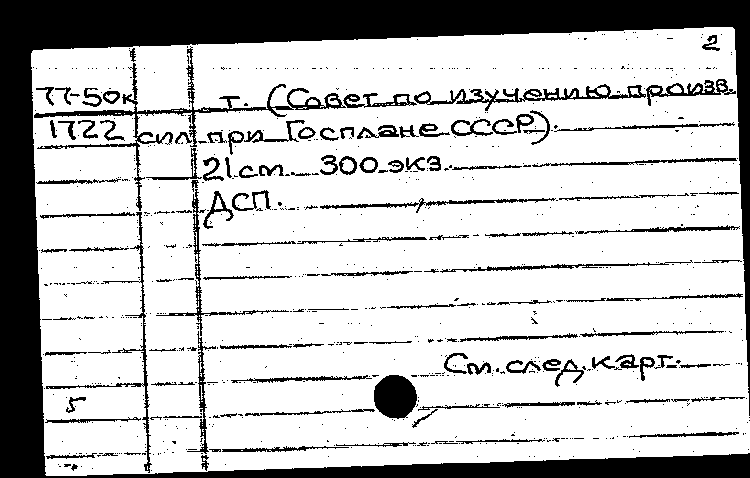 2
77-50к т. (Совет по изучению произв.
1722 сил при Госплане СССР).
21 см. 300 экз.
ДСП.
См. след. карт.
5